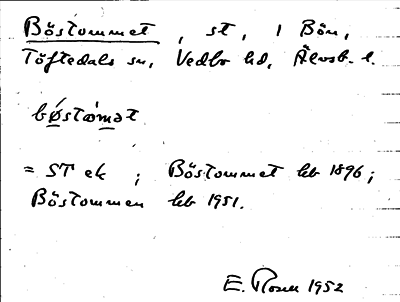 Böstommet, st, i Bön,
Töftedals sn, Vedbo hd, Älvsb. l.
bøstømət
= ST ek ; Böstommet hb 1896;
Böstommen hb 1951.
E. Rosen 1952